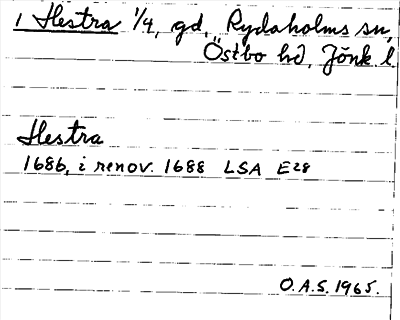 1 Hestra 1/4, gd, Rydaholms sn,
Östbo hd, Jönk l
Hestra
1686, i renov. 1688 LSA E28
O.A.S. 1965.